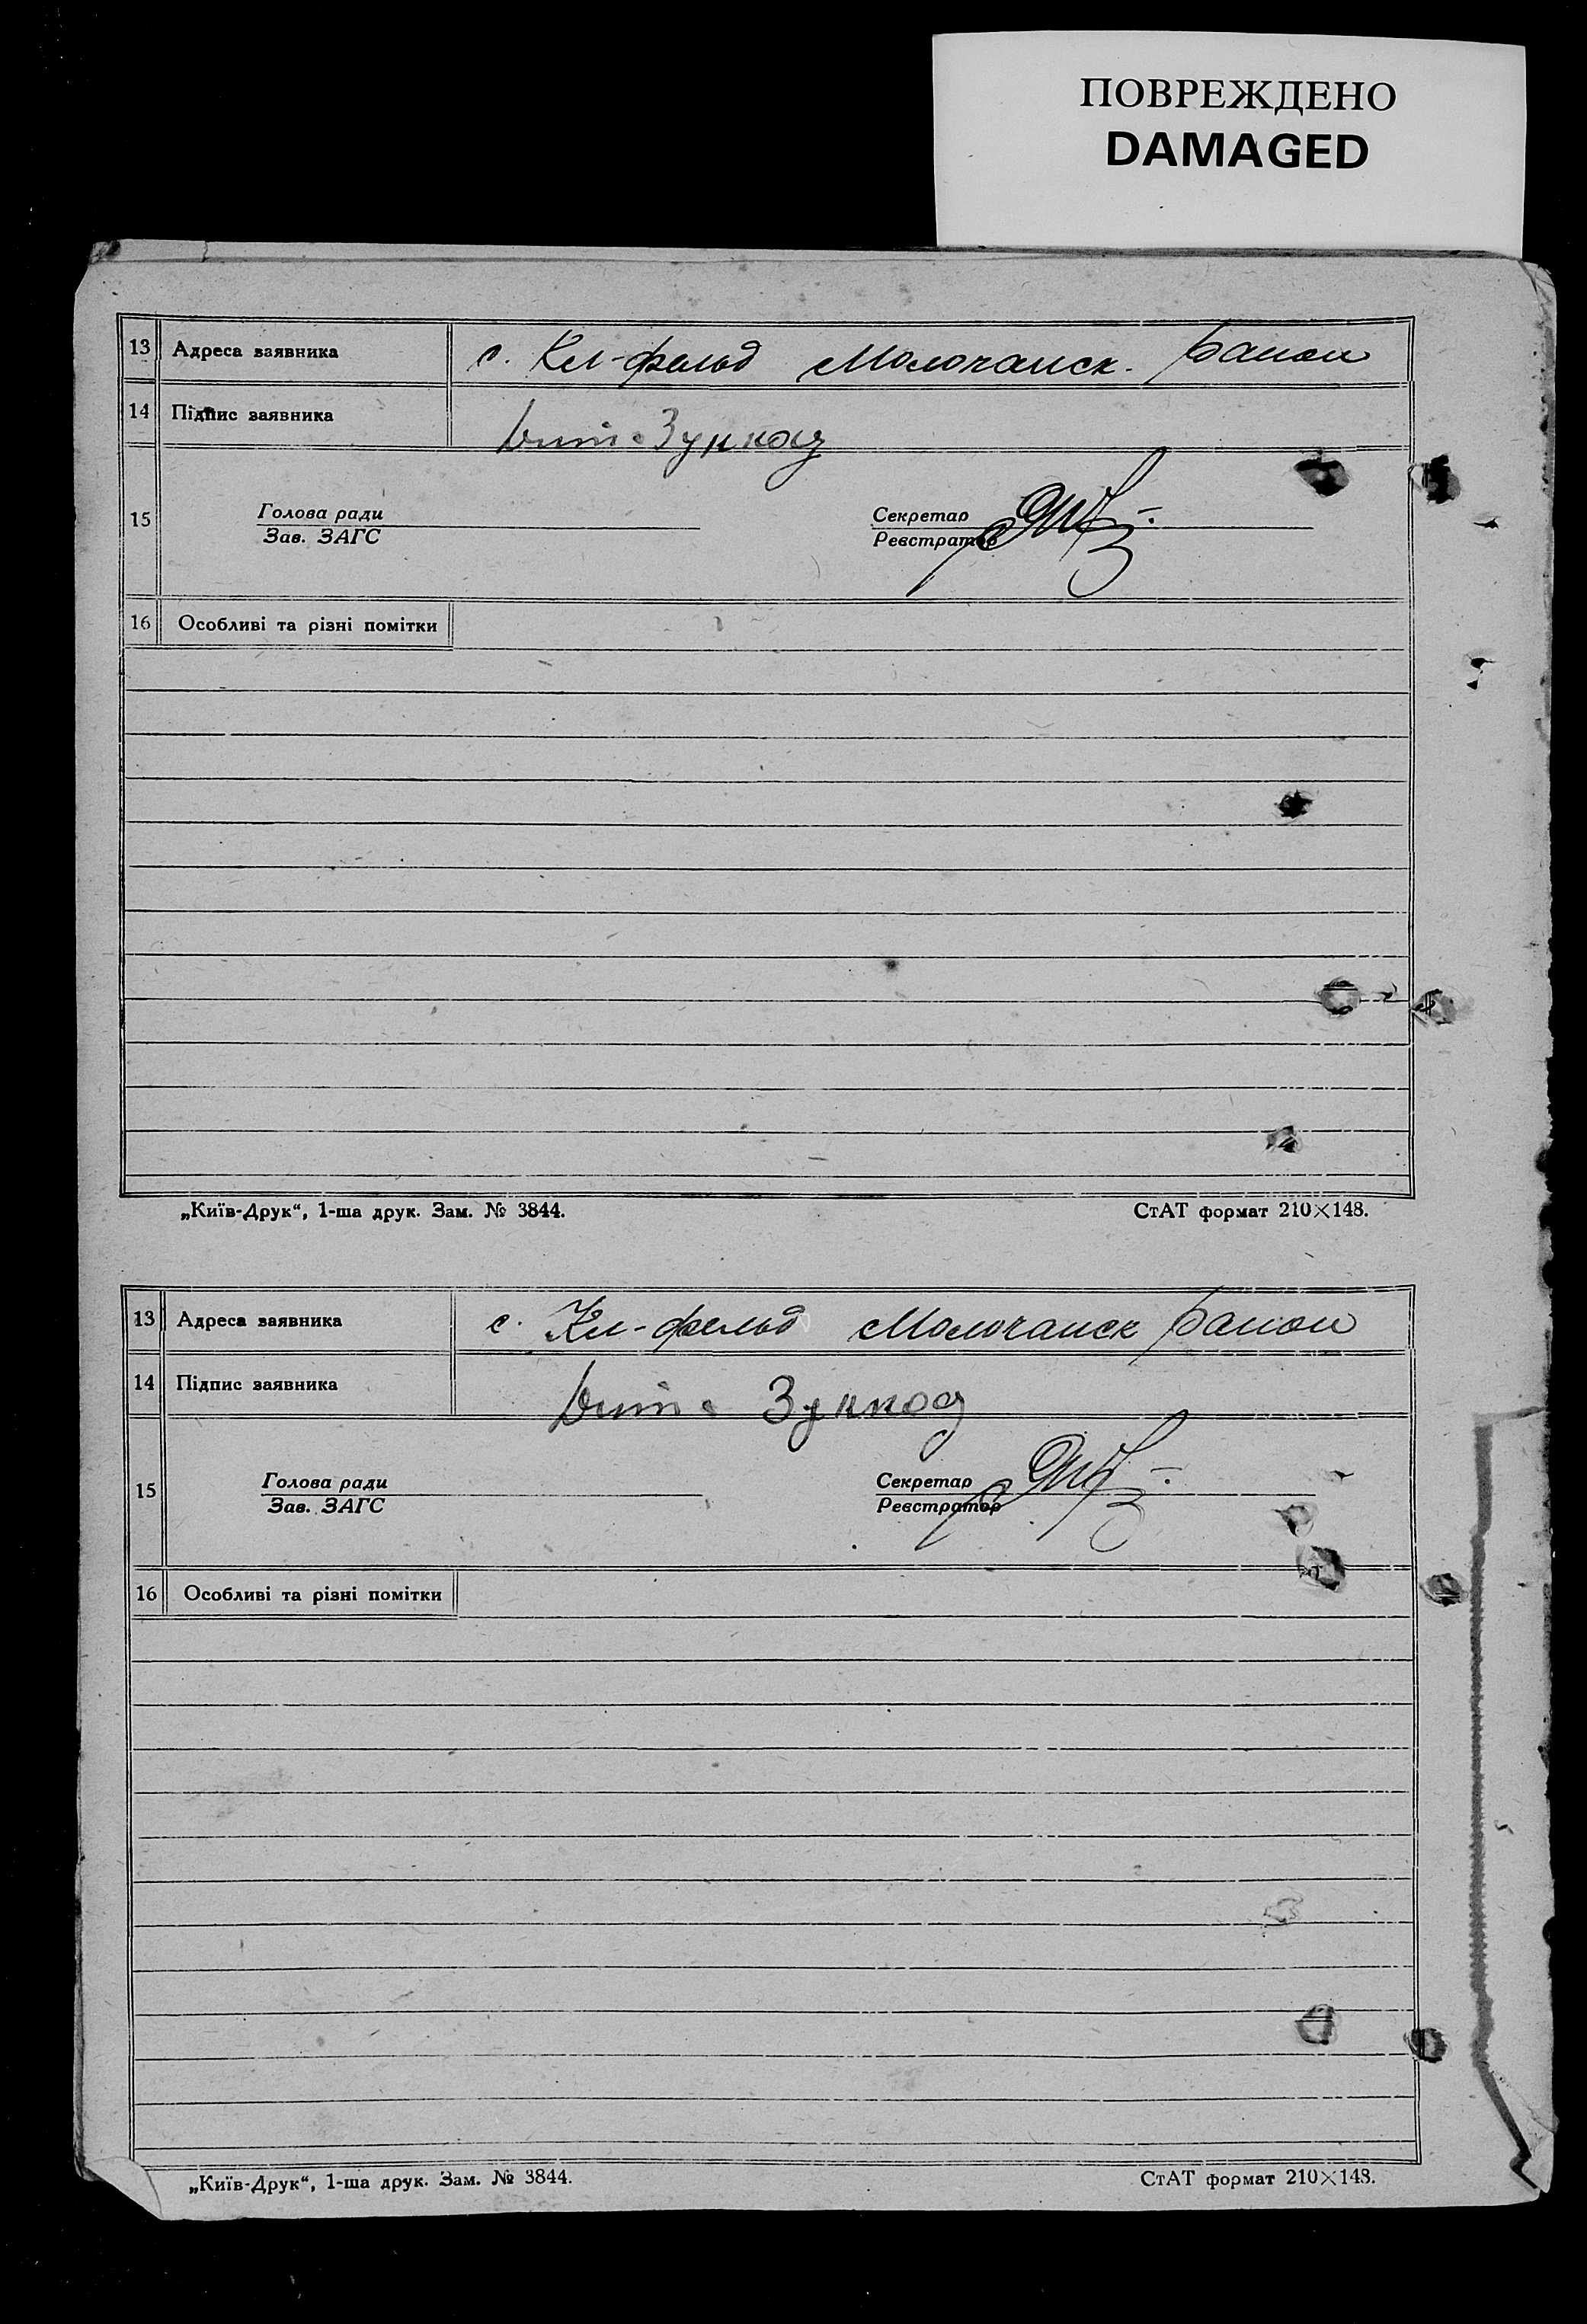 ПОВРЕЖДЕНО
DAMAGED
13 Адреса заявника с. Кл-фельд Молочанск. район
14 Підпис заявника
15 Голова ради Секретар
Зав. ЗАГС Реєстратор
16 Особливі та різні помітки
„Київ-Друк“, 1-ша друк. Зам. № 3844. СтАТ формат 210×148.
13 Адреса заявника с. Кл-фельд Молочанск район
14 Підпис заявника
15 Голова ради Секретар
Зав. ЗАГС Реєстратор
16 Особливі та різні помітки
„Київ-Друк“, 1-ша друк. Зам. № 3844. СтАТ формат 210×148.